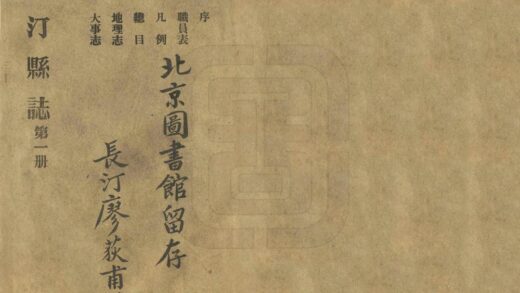 序
職員表
凡例
總目
地理志
大事志
北京圖書館留存
長汀廖荻甫
汀縣誌 第一册